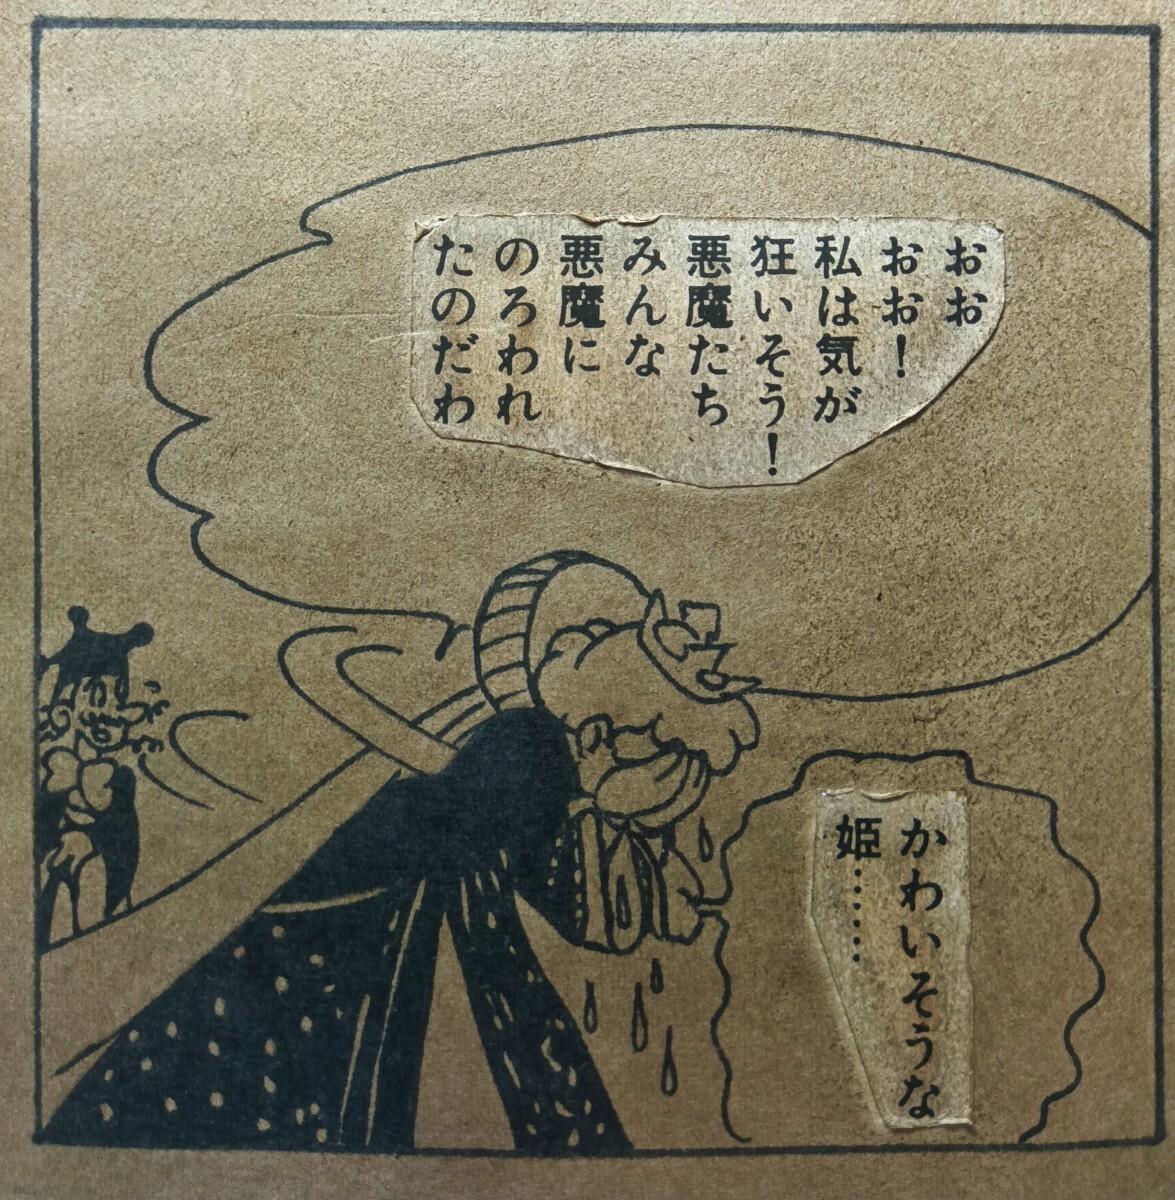 おお
おお！
私は気が
狂いそう！
悪魔たち
みんな
悪魔に
のろわれ
たのだわ
かわいそうな
姫……